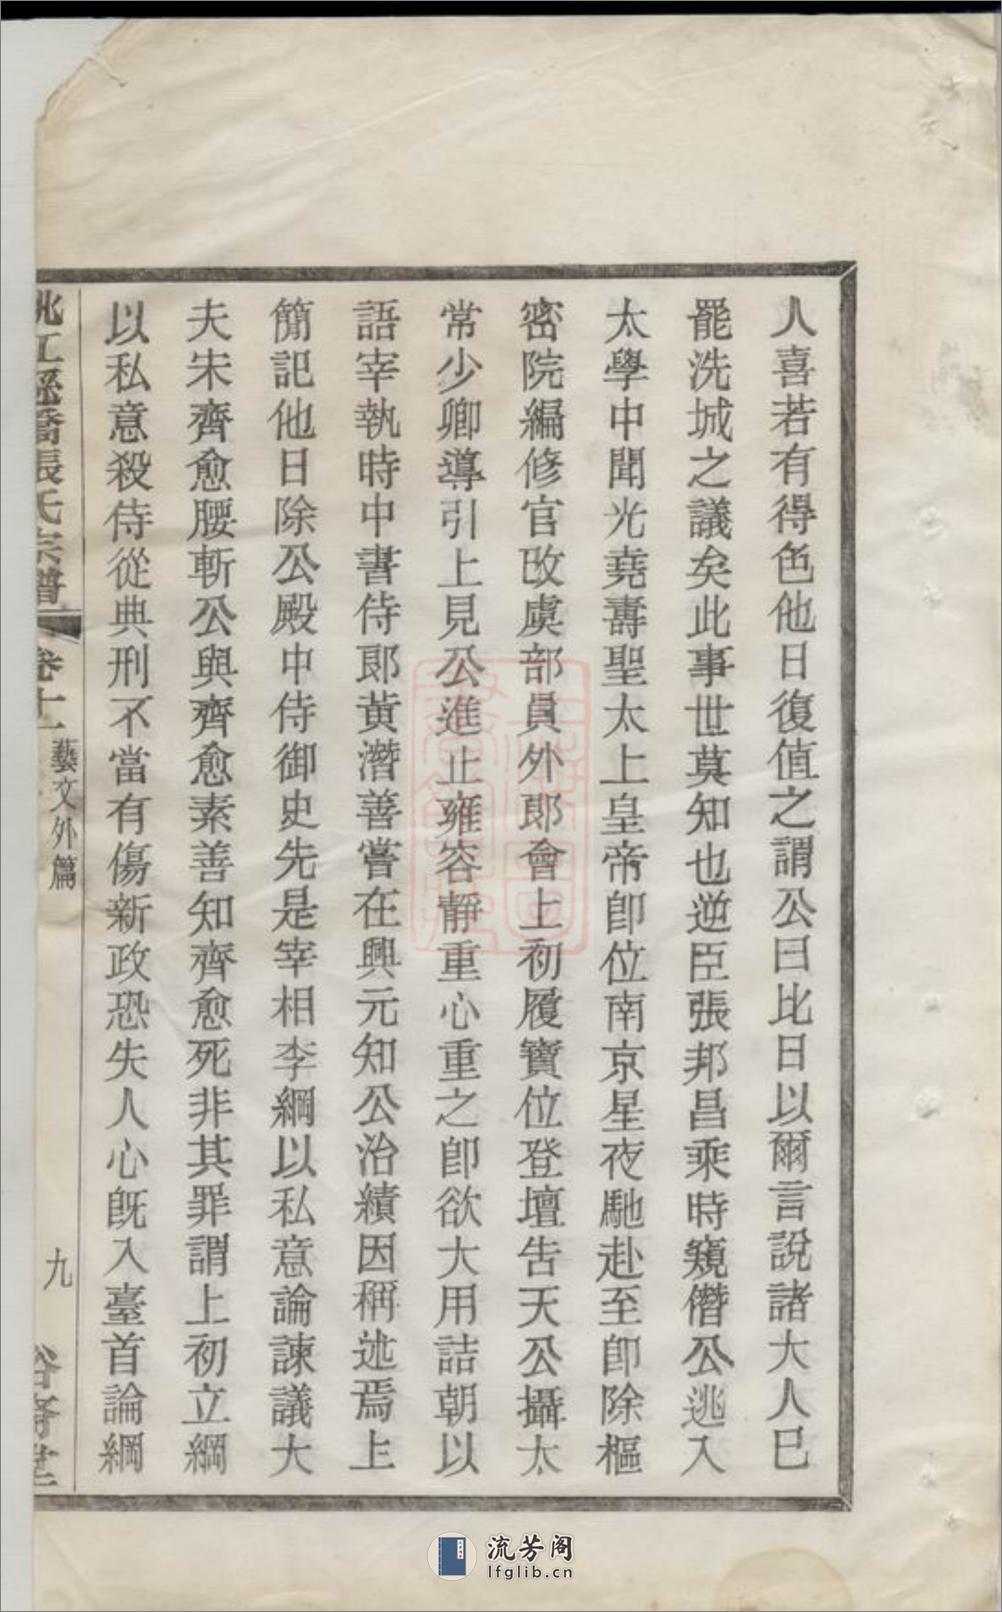 人喜若有得色他日復值之謂公曰比日以爾言說諸大人已
罷洗城之議矣此事世莫知也逆臣張邦昌乘時窺僭公逃入
太學中聞光堯壽聖太上皇帝卽位南京星夜馳赴至卽除樞
密院編修官改虞部員外郞會上初履寶位登壇告天公攝太
常少卿導引上見公進止雍容靜重心重之卽欲大用詰朝以
語宰執時中書侍郞黃潛善嘗在興元知公治績因稱述焉上
簡記他日除公殿中侍御史先是宰相李綱以私意論諫議大
夫宋齊愈腰斬公與齊愈素善知齊愈死非其罪謂上初立綱
以私意殺侍從典刑不當有傷新政恐失人心旣入臺首論綱
姚江　橋張氏宗譜　卷十一　藝文外篇　九
流芳阁
lfglib.cn